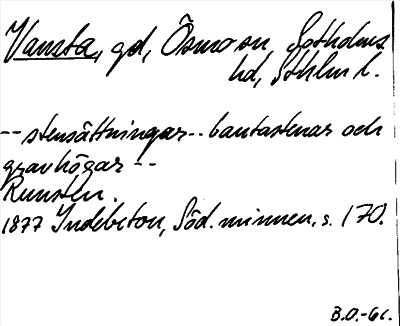 Vansta, gd, Ösmo sn, Sotholms
hd, Sthlm l.
-- stensättningar -- bautastenar och
gravhögar --
Runsten.
1877 Indebetou, Söd. minnen, s. 170.
B.O.-Gl.